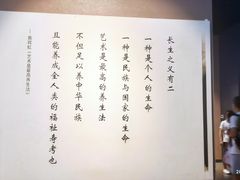 长生之义有二
一种是个人的生命
一种是民族与国家的生命
艺术是最高的养生法
不但足以养中华民族
且能养成全人类的福祉寿考也
——黄宾虹《艺术是最高的养生法》
20